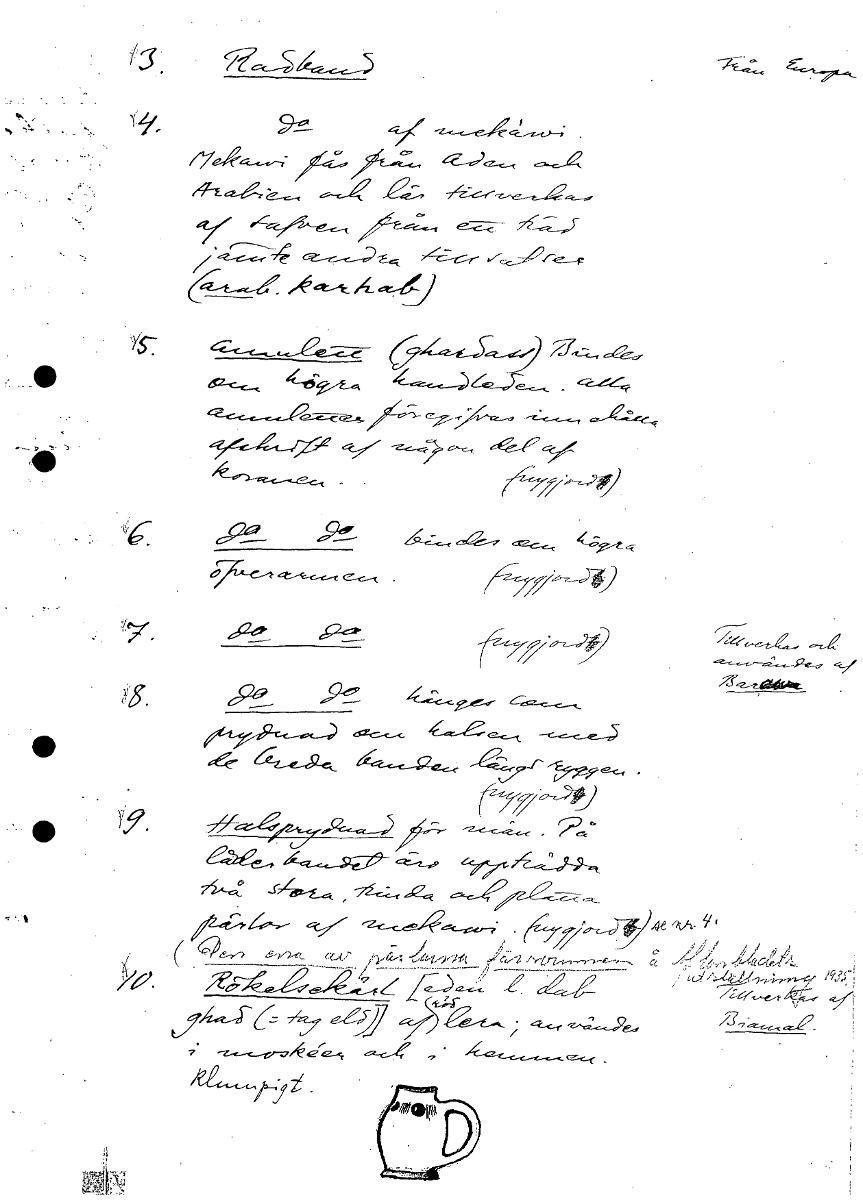 3. Radband Från Europa
4. do af mekáwi.
Mekawi fås från Aden och
Arabien och lär tillverkas
af saften från ett träd
jämte andra tillsatser
(arab. karhab)
5. Amulett (ghardass) Bindes
om högra handleden. Alla
amuletter föregifvas innehålla
afskrift af någon del af
koranen. (nygjord)
6. do do bindes om högra
öfverarmen. (nygjord)
7. do do (nygjord) Tillverkas och
användes af
8. do do hänges som
prydnad om halsen med
de breda banden längs ryggen.
(nygjord)
9. Halsprydnad för män. På
läderbandet äro uppträdda
två stora, runda och platta
pärlor af mekawi. (nygjord) se nr 4.
(Den ena av pärlorna försvunnen å Aftonbladets
utställning 1935
10. Rökelsekärl [eden l. dab Tillverkas af
ghad (= tag eld)] af röd lera; användes Biamal.
i moskéer och i hemmen.
Klumpigt.